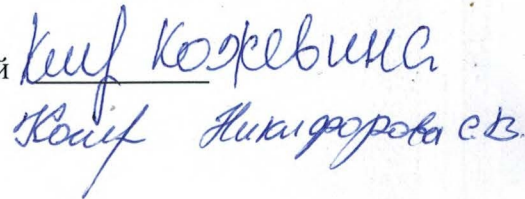 й Кожевина
Никифорова С.В.